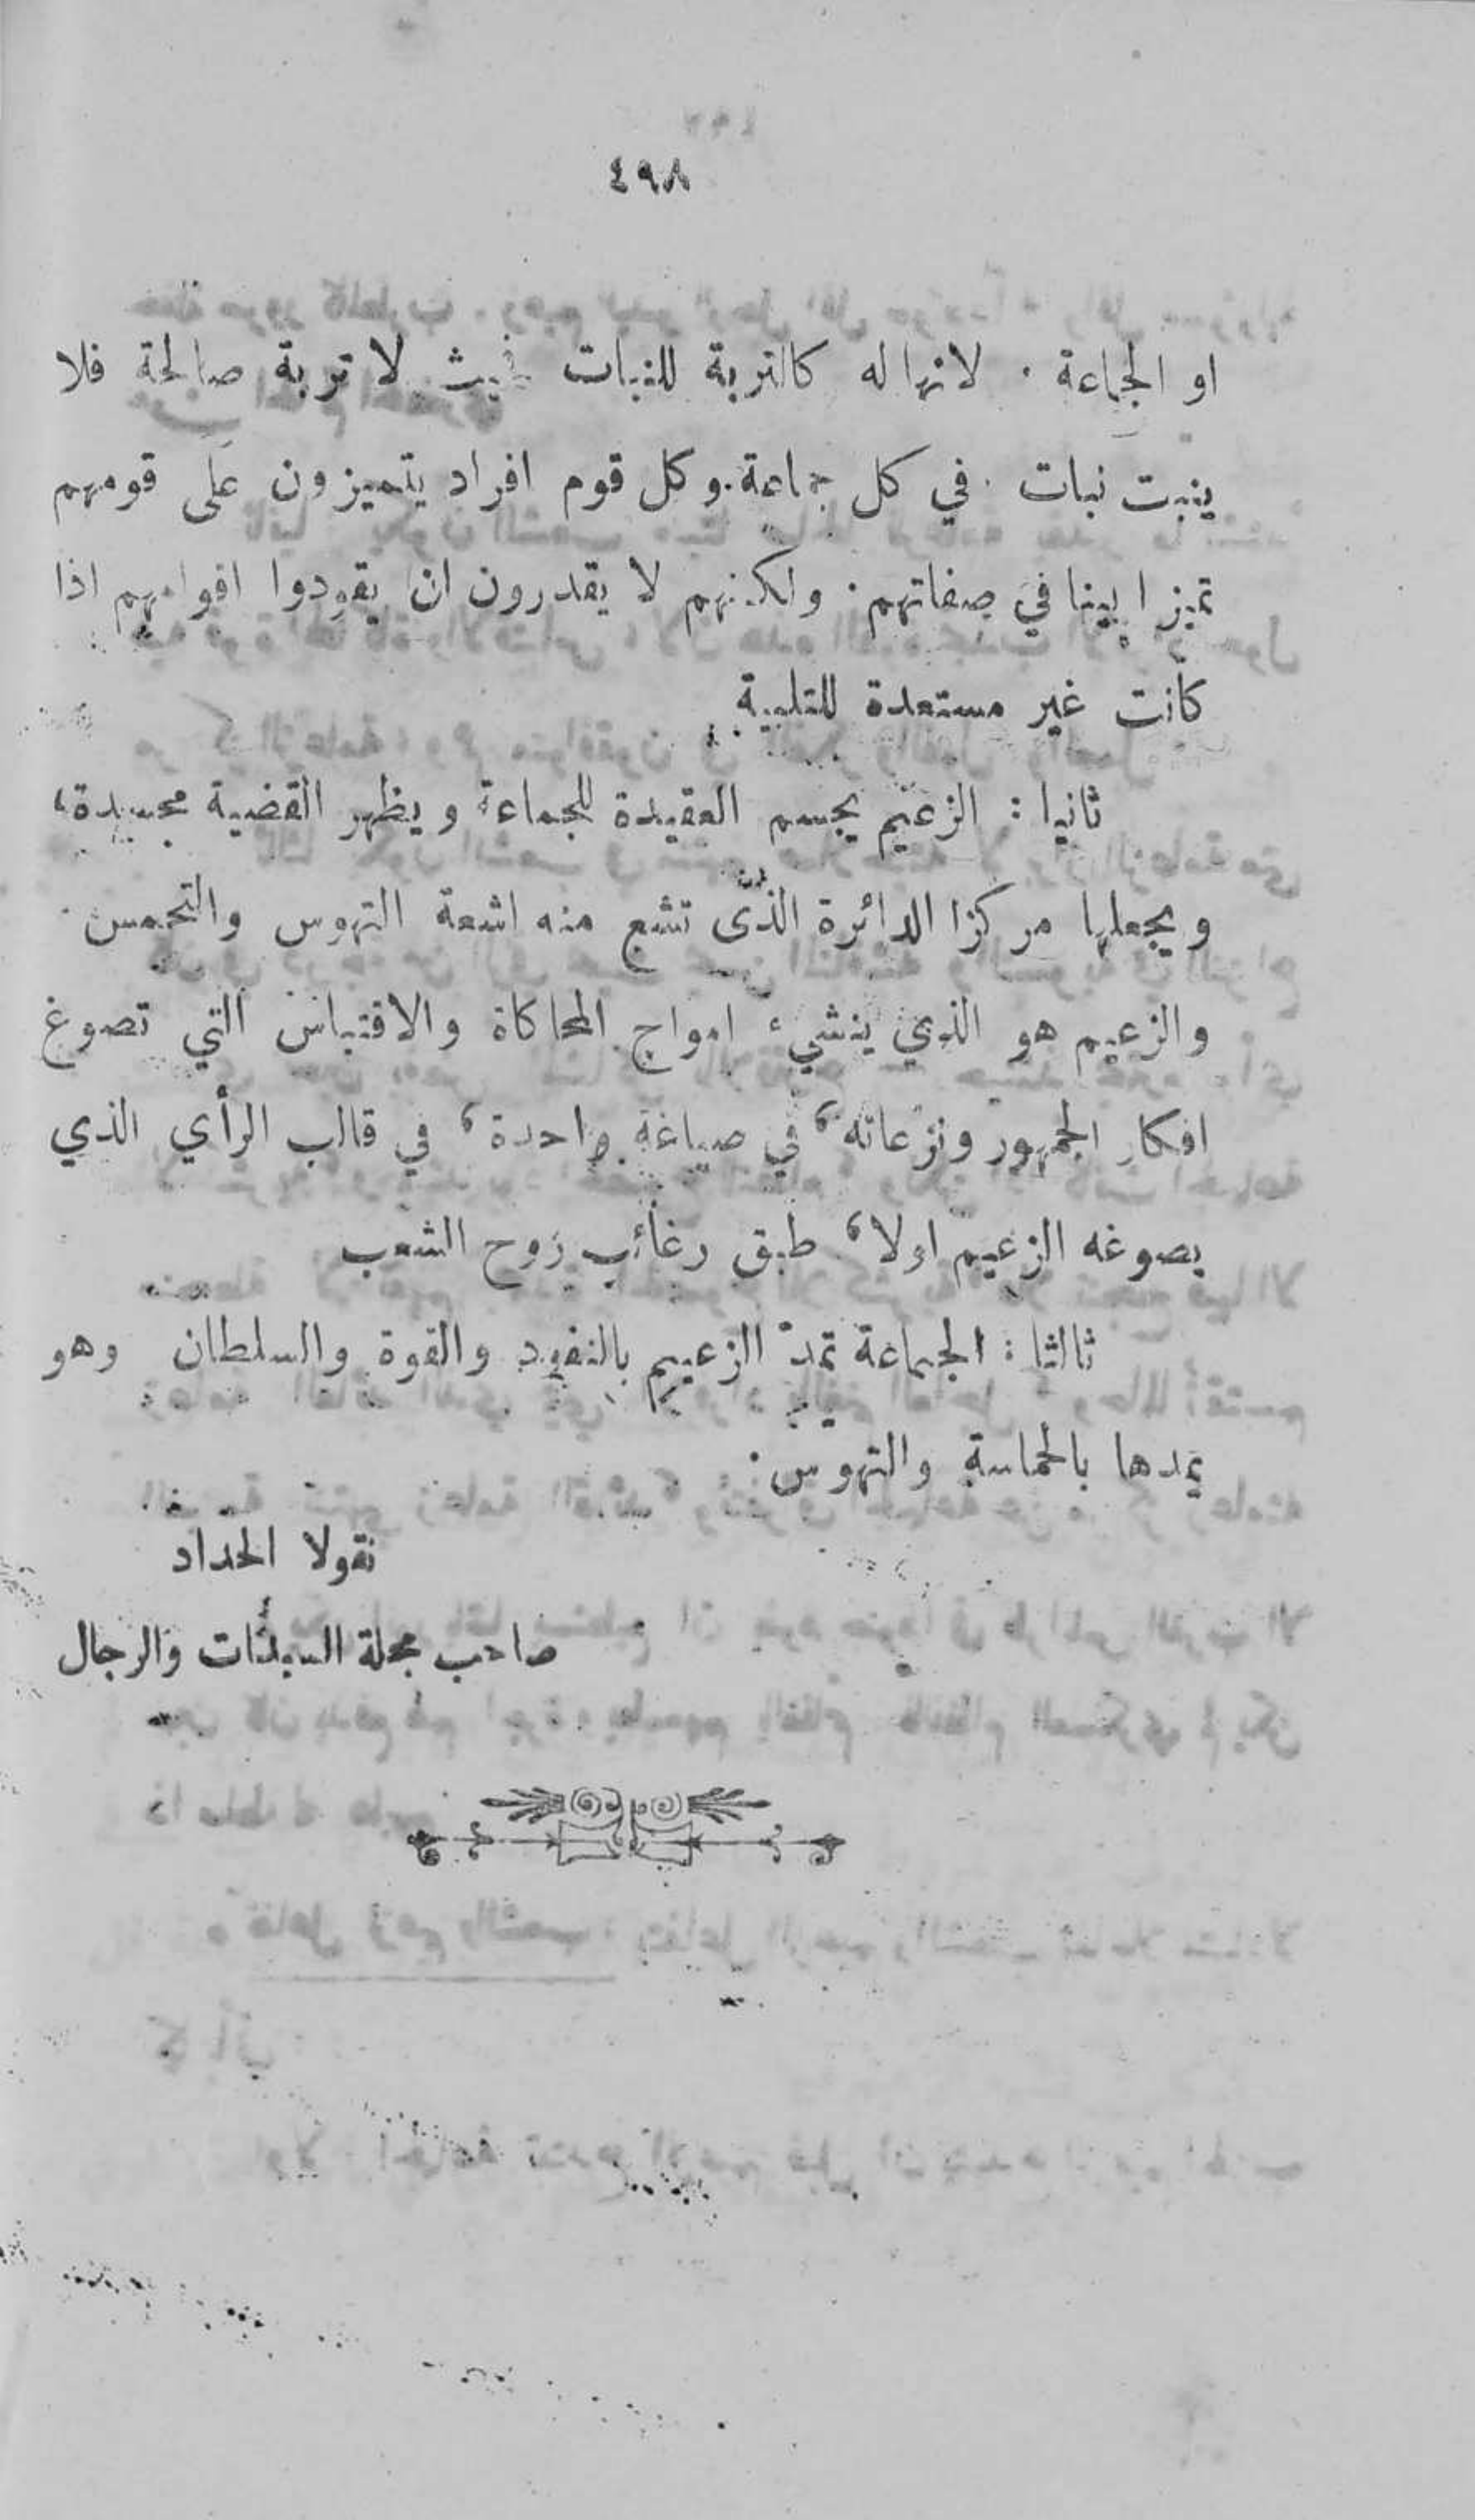 ٤٩٨
او الجماعة . لانها له كالتربة للنبات فحيث لا تربة صالحة فلا
ينبت نبات . في كل جماعة . وكل قوم افراد يتميزون على قومهم
تميزا بينا في صفاتهم . ولكنهم لا يقدرون ان يقودوا اقوامهم اذا
كانت غير مستعدة للتلبية .
ثانيا : الزعيم يجسم العقيدة للجماعة ويظهر القضية مجسدة ،
ويجعلها مركزا الدائرة الذي تشع منه اشعة التهوس والتحمس .
والزعيم هو الذي ينشيء امواج المحاكاة والاقتباس التي تصوغ
افكار الجمهور ونزعاته ، في صياغة واحدة ، في قالب الرأي الذي
يصوغه الزعيم اولا ، طبق رغائب روح الشعب
ثالثا : الجماعة تمدّ الزعيم بالنفوذ والقوة والسلطان وهو
يمدها بالحماسة والتهوس .
نقولا الحداد
صاحب مجلة السيدات والرجال